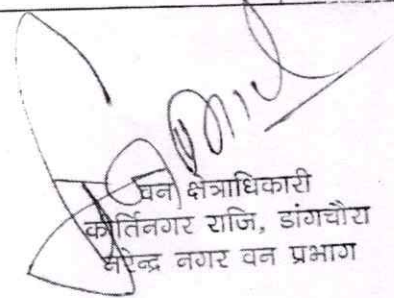 वन क्षेत्राधिकारी
कीर्तिनगर राजि, डांगचौरा
नरेन्द्र नगर वन प्रभाग